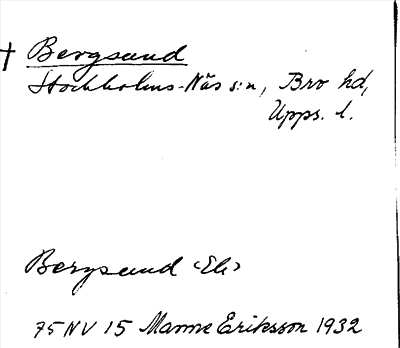 † Bergsund
Stockholms-Näs s:n, Bro hd,
Upps. l.
Bergsund <Ek>
75 NV 15 Manne Eriksson 1932